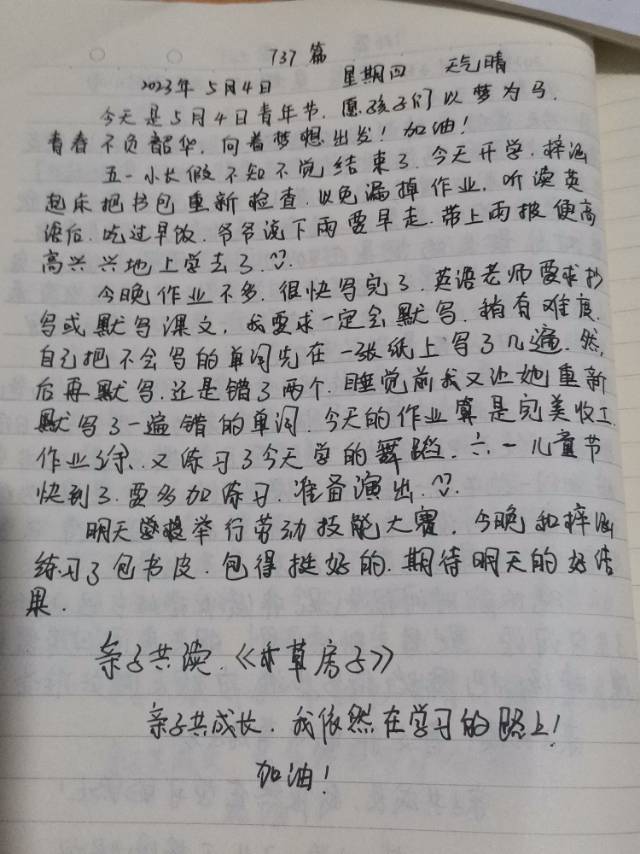 737篇
2023年5月4日 星期四 天气晴
今天是5月4日青年节.愿孩子们以梦为马.
青春不负韶华.向着梦想出发!加油!
五一小长假不知不觉结束了.今天开学.梓涵
起床把书包重新检查.以免漏掉作业.听读英
语后.吃过早饭.爷爷说下雨要早走.带上雨披便高
高兴兴地上学去了.
今晚作业不多.很快写完了.英语老师要求抄
写或默写课文,我要求一定会默写.稍有难度.
自己把不会写的单词先在一张纸上写了几遍.然
后再默写.还是错了两个.睡觉前我又让她重新
默写了一遍错的单词.今天的作业算是完美收工
作业徐.又练习了今天学的舞蹈.六一儿童节
快到了.要多加练习.准备演出.
明天学校举行劳动技能大赛,今晚和梓涵
练习了包书皮.包得挺好的.期待明天的好结
果.
亲子共读.《草房子》
亲子共成长.我依然在学习的路上!
加油!